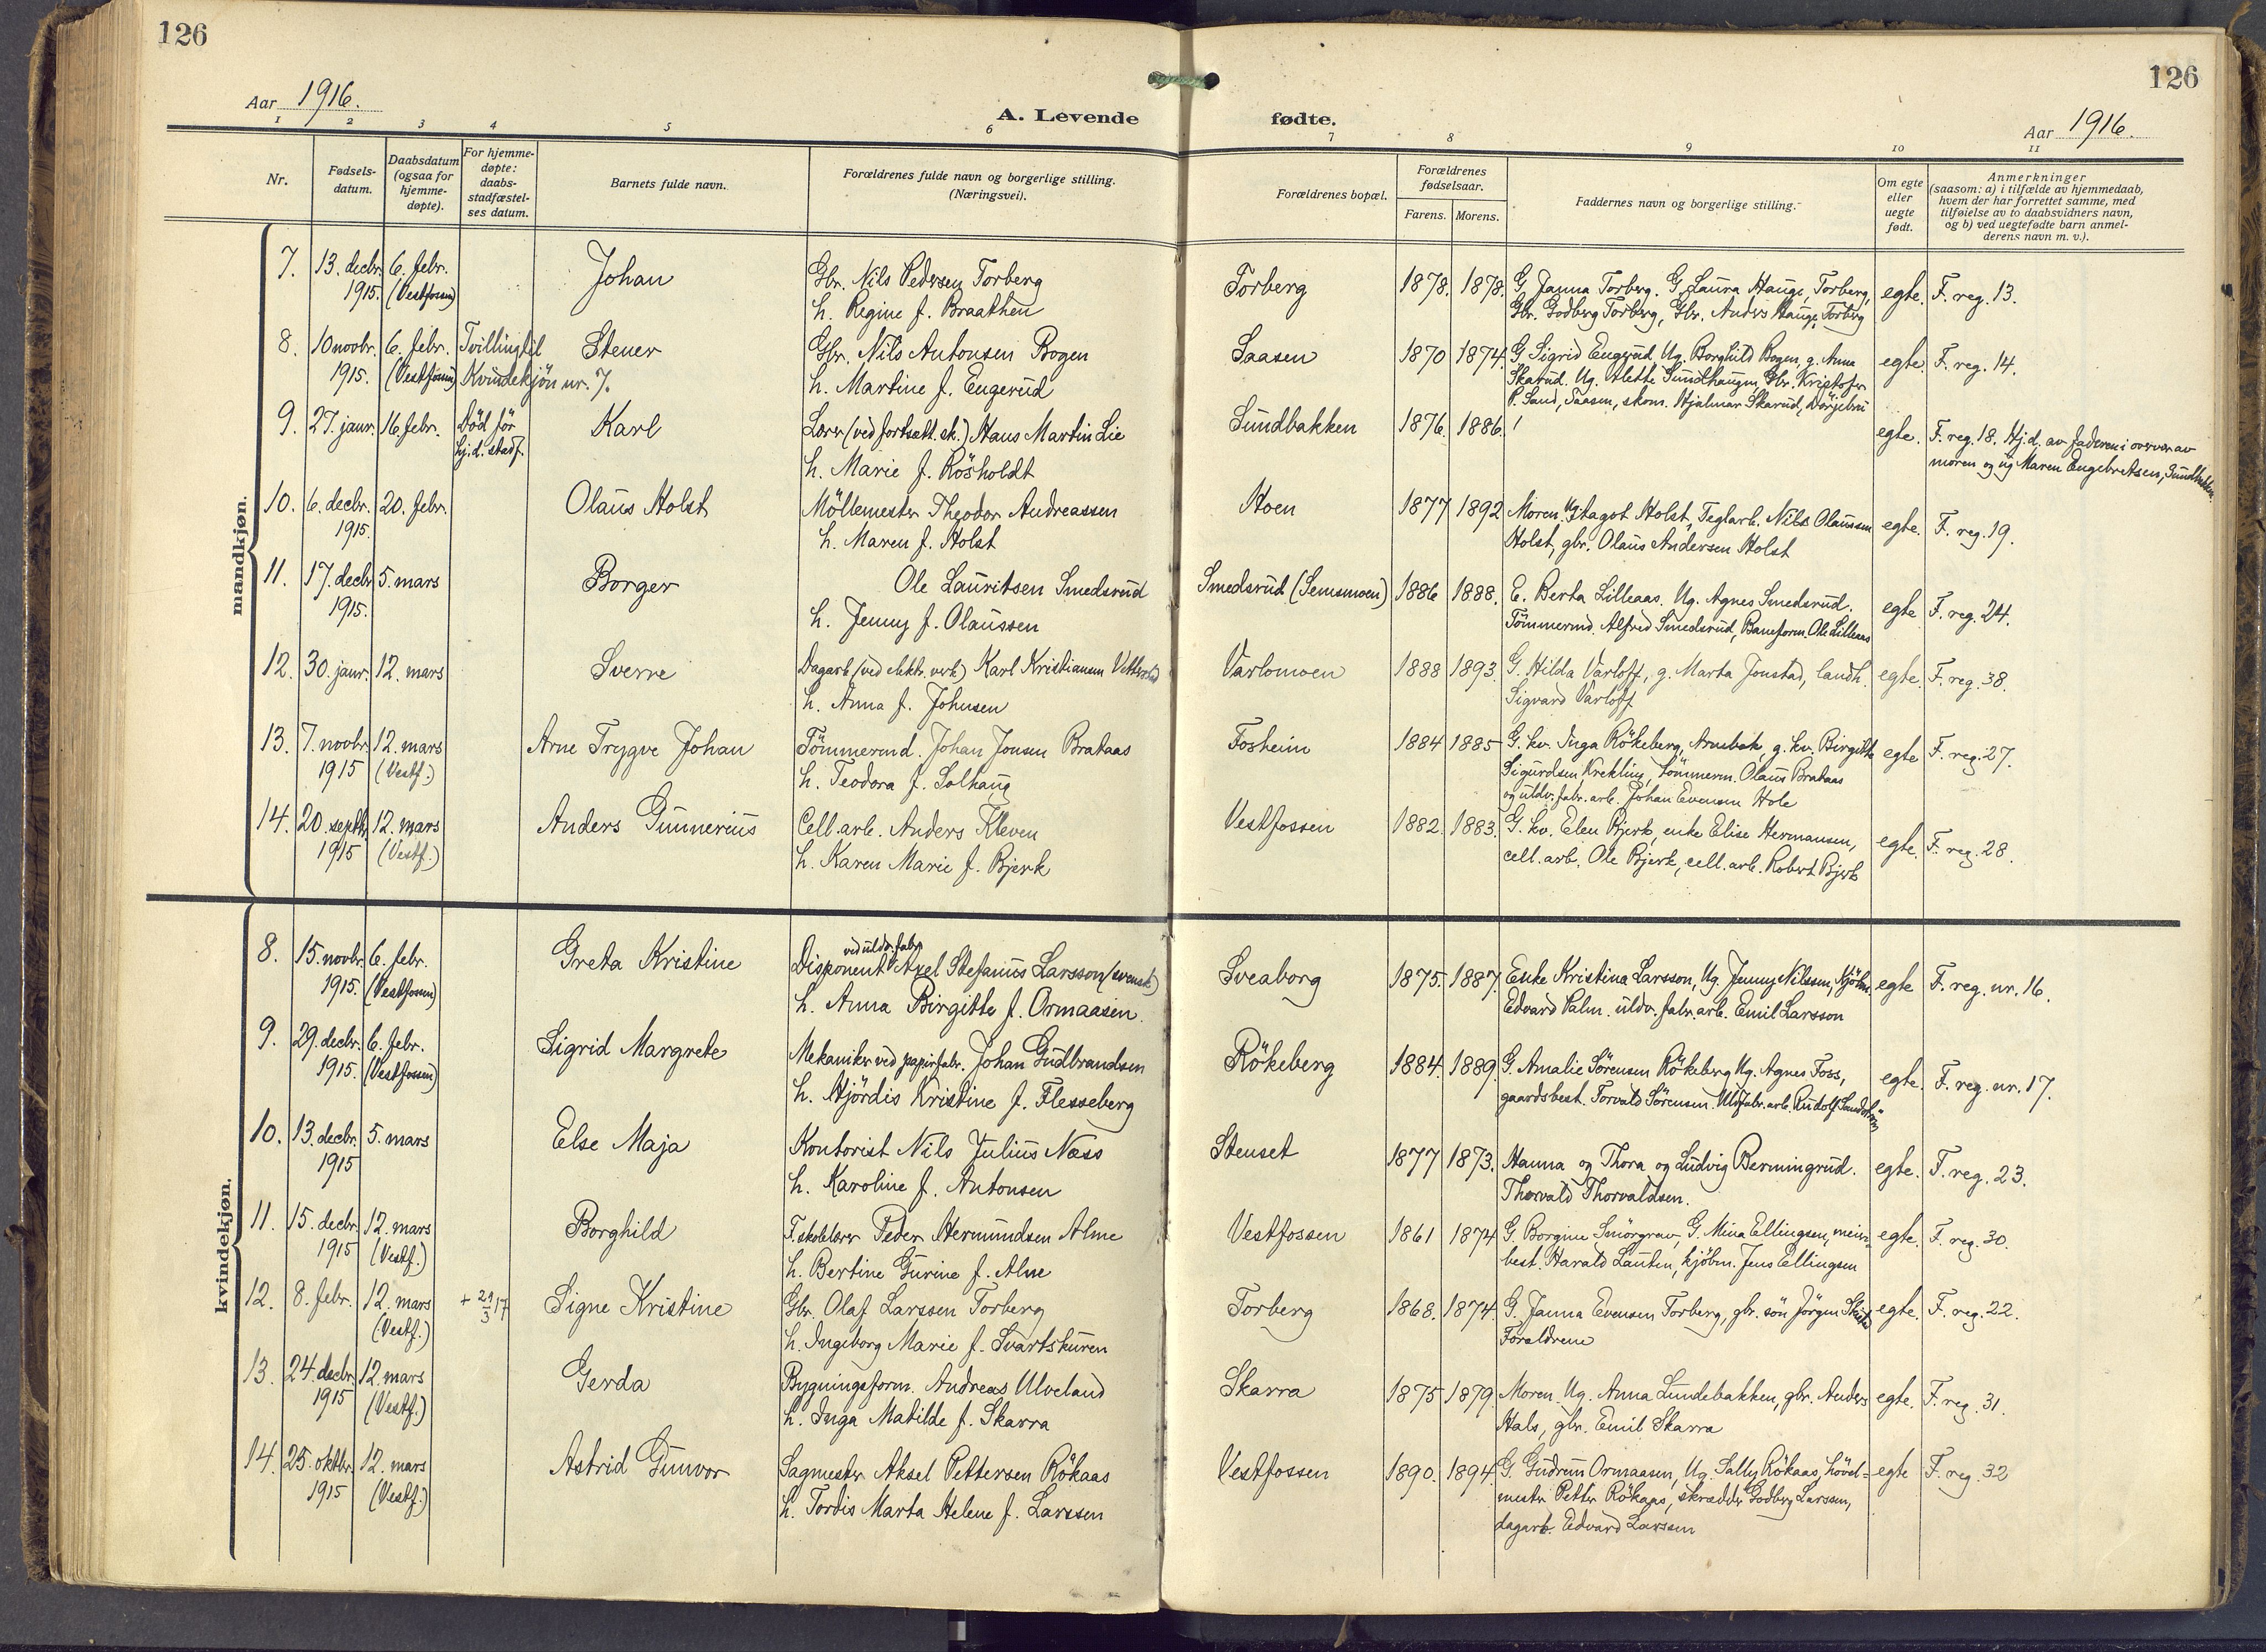 126
126
Aar 1916.
A. Levende fødte.
Aar 1916.
1 2 3 4 5 6 7 8 9 10 11
Nr.
Fødsels-
datum.
Daabsdatum
(ogsaa for
hjemme-
døpte).
For hjemme-
døpte:
daabs-
stadfæstel-
ses datum.
Barnets fulde navn.
Forældrenes fulde navn og borgerlige stilling.
(Næringsvei).
Forældrenes bopæl.
Forældrenes
fødselsaar.
Farens. Morens.
Faddernes navn og borgerlige stilling.
Om egte
eller
uegte
født.
Anmerkninger
(saasom: a) i tilfælde av hjemmedaab,
hvem der har forrettet samme, med
tilføielse av to daabsvidners navn,
og b) ved uegtefødte barn anmel-
derens navn m. v.).
mandkjøn.
7. 13. decbr. 6. febr. Johan Gbr. Nils Pedersen Torberg Torberg 1878. 1878. G. Janna Torberg. G. Laura Hauge, Torberg, egte. F. reg. 13.
1915. (Vestfossen) h. Regine f. Braathen Gbr. Godberg Torberg, Gbr. Anders Hauge, Torberg
8. 10 novbr. 6. febr. Tvilling til Stener Gbr. Nils Antonsen Bogen Saasen 1870 1874. G. Sigrid Engerud, Ug. Borghild Bogen, g. Anna egte. F. reg. 14.
1915. (Vestfossen) Kvindekjön nr. 7. h. Martine f. Engerud Skarud. Ug. Alette Sundhaugen, Gbr. Kristofer
P. Sand, Saasen, skom. Hjalmar Skarud,
9. 27. janr. 16 febr. Död för Karl Lærer (ved fortsett. sk.) Hans Martin Lie Sundbakken 1876. 1886. egte. F. reg. 18. Hj.d. av faderen i overvær av
hj.d. stadf. h. Marie f. Rösholdt moren og ug Maren Engebretsen, Sundbakken
10. 6. decbr. 20. febr. Olaus Holst Möllemester Theodor Andreassen Hoen 1877 1892 Moren. Ug Hagot Holst, Teglarb. Nils Olaussen egte. F. reg. 19.
1915. h. Maren f. Holst Holst, gbr. Olaus Andersen Holst
11. 17. decbr. 5. mars Borger Ole Lauritsen Smedsrud Smedsrud (Semsmoen) 1886 1888. E. Berta Lilleaas. Ug. Agnes Smedsrud. egte F. reg. 24.
1915. h. Jenny f. Olaussen Tömmermd. Alfred Smedsrud, Baneform. Ole Lilleaas
12. 30. janr. 12. mars Sverre Dagarb. (ved elektr. verk) Karl Kristiansen Varlomoen 1888 1893. G. Hilda Varloff, g. Marta Jonstad, landh. egte. F. reg. 38.
h. Anna f. Johnsen Sigvard Varloff
13. 7. novbr. 12. mars Arne Trygve Johan Tömmermd. Johan Jonsen Brataas Fosheim 1884 1885 G. kv. Inga Rökeberg, Arnebak, g. kv. Birgitte egte F. reg. 27.
1915 (Vestf.) h. Teodora f. Solhaug Sigurdsen, Krekling, tömmerm. Olaus Brataas
og uldv. fabr. arb. Johan Evensen Hole
14. 20. septbr. 12. mars Anders Gunnerius Cell. arb. Anders Kleven Vestfossen 1882. 1883. G. kv. Elen Bjerk, enke Elise Hermansen, egte. F. reg. 28.
1915 (Vestf.) h. Karen Marie f. Bjerk cell. arb. Ole Bjerk, cell. arb. Robert Bjerk
kvindekjøn.
ved uldv. fabr
8. 15. novbr. 6. febr. Greta Kristine Disponent Axel Stefanus Larsson (svensk) Sveaborg 1875. 1887. Enke Kristina Larsson, Ug. Jenny Nilssen, Kjöbm. egte F. reg. nr. 16.
1915. (Vestfossen) h. Anna Birgitte f. Ormaasen. Edvard Palm. uldv. fabr. arb. Emil Larsson
9. 29. decbr. 6. febr. Sigrid Margrete Mekaniker ved papirfabr. Johan Gudbrandsen Rökeberg 1884. 1889. G. Amalie Sörensen Rökeberg Ug. Agnes Foss, egte. F. reg. nr. 17.
1915. (Vestfossen) h. Hjördis Kristine f. Flesseberg gaardsbest. Torvald Sörensen. Uldvfabr. arb. Rudolf Sandström
10. 13. decbr. 5. mars Else Maja Kontorist Nils Julius Næss Stenset 1877 1873. Hanna og Thora og Ludvig Berningrud. egte. F. reg. 23.
1915 h. Karoline f. Antonsen Thorvald Thorvaldsen.
11. 15. decbr. 12. mars Borghild F. skolelærer Peder Hermundsen Alme Vestfossen 1861 1874 G. Borgine Smörgrav, G. Mina Ellingsen, meieri- egte. F. reg. 30.
1915 (Vestf.) h. Bertine Gurine f. Alme best. Harald Lauten, kjöbm. Jens Ellingsen
12. 8. febr. 12. mars + 21/3 17 Signe Kristine Gbr. Olaf Larssen Torberg Torberg 1868. 1874. G. Janna Evensen Torberg, gbr. sön Jörgen egte. F. reg. 22.
(Vestf.) h. Ingeborg Marie f. Svartskuren Forældrene
13. 24. decbr. 12. mars Gerda Bygningsform. Andreas Ulveland Skarra 1875 1879. Moren. Ug. Anna Lundebakken, gbr. Anders egte. F. reg. 31.
1915 (Vestf.) h. Inga Matilde f. Skarra Hals, gbr. Emil Skarra
14. 25. oktbr. 12. mars Astrid Gunvor Sagmester Aksel Pettersen Rökaas Vestfossen 1890. 1894. G. Gudrun Ormaasen, Ug. Sally Rökaas, hövel- egte F. reg. 32
1915 (Vestf.) h. Tordis Marta Helene f. Larssen mester Petter Rökaas, skrædder Godberg Larssen,
dagarb. Edvard Larssen